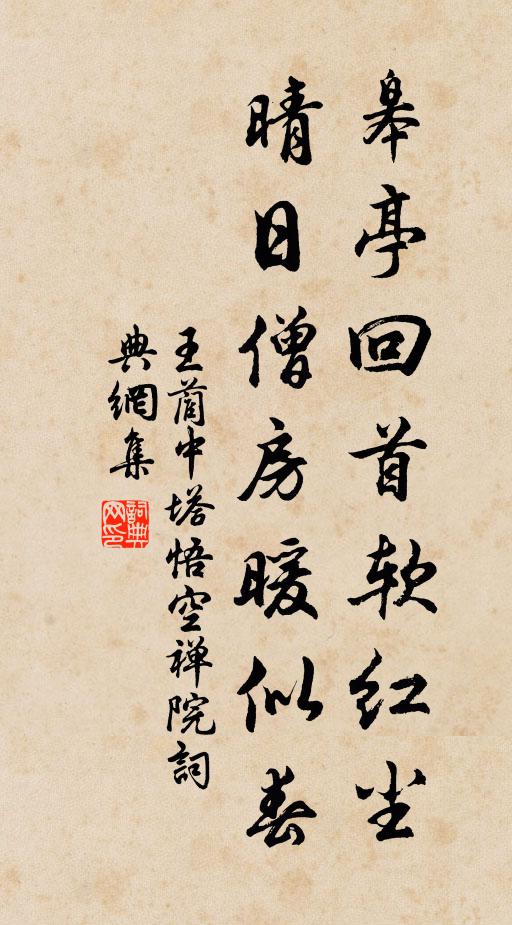 皋亭回首软红尘
晴日僧房暖似春
王蔺中塔悟空禅院詞
典網集
詞典网印